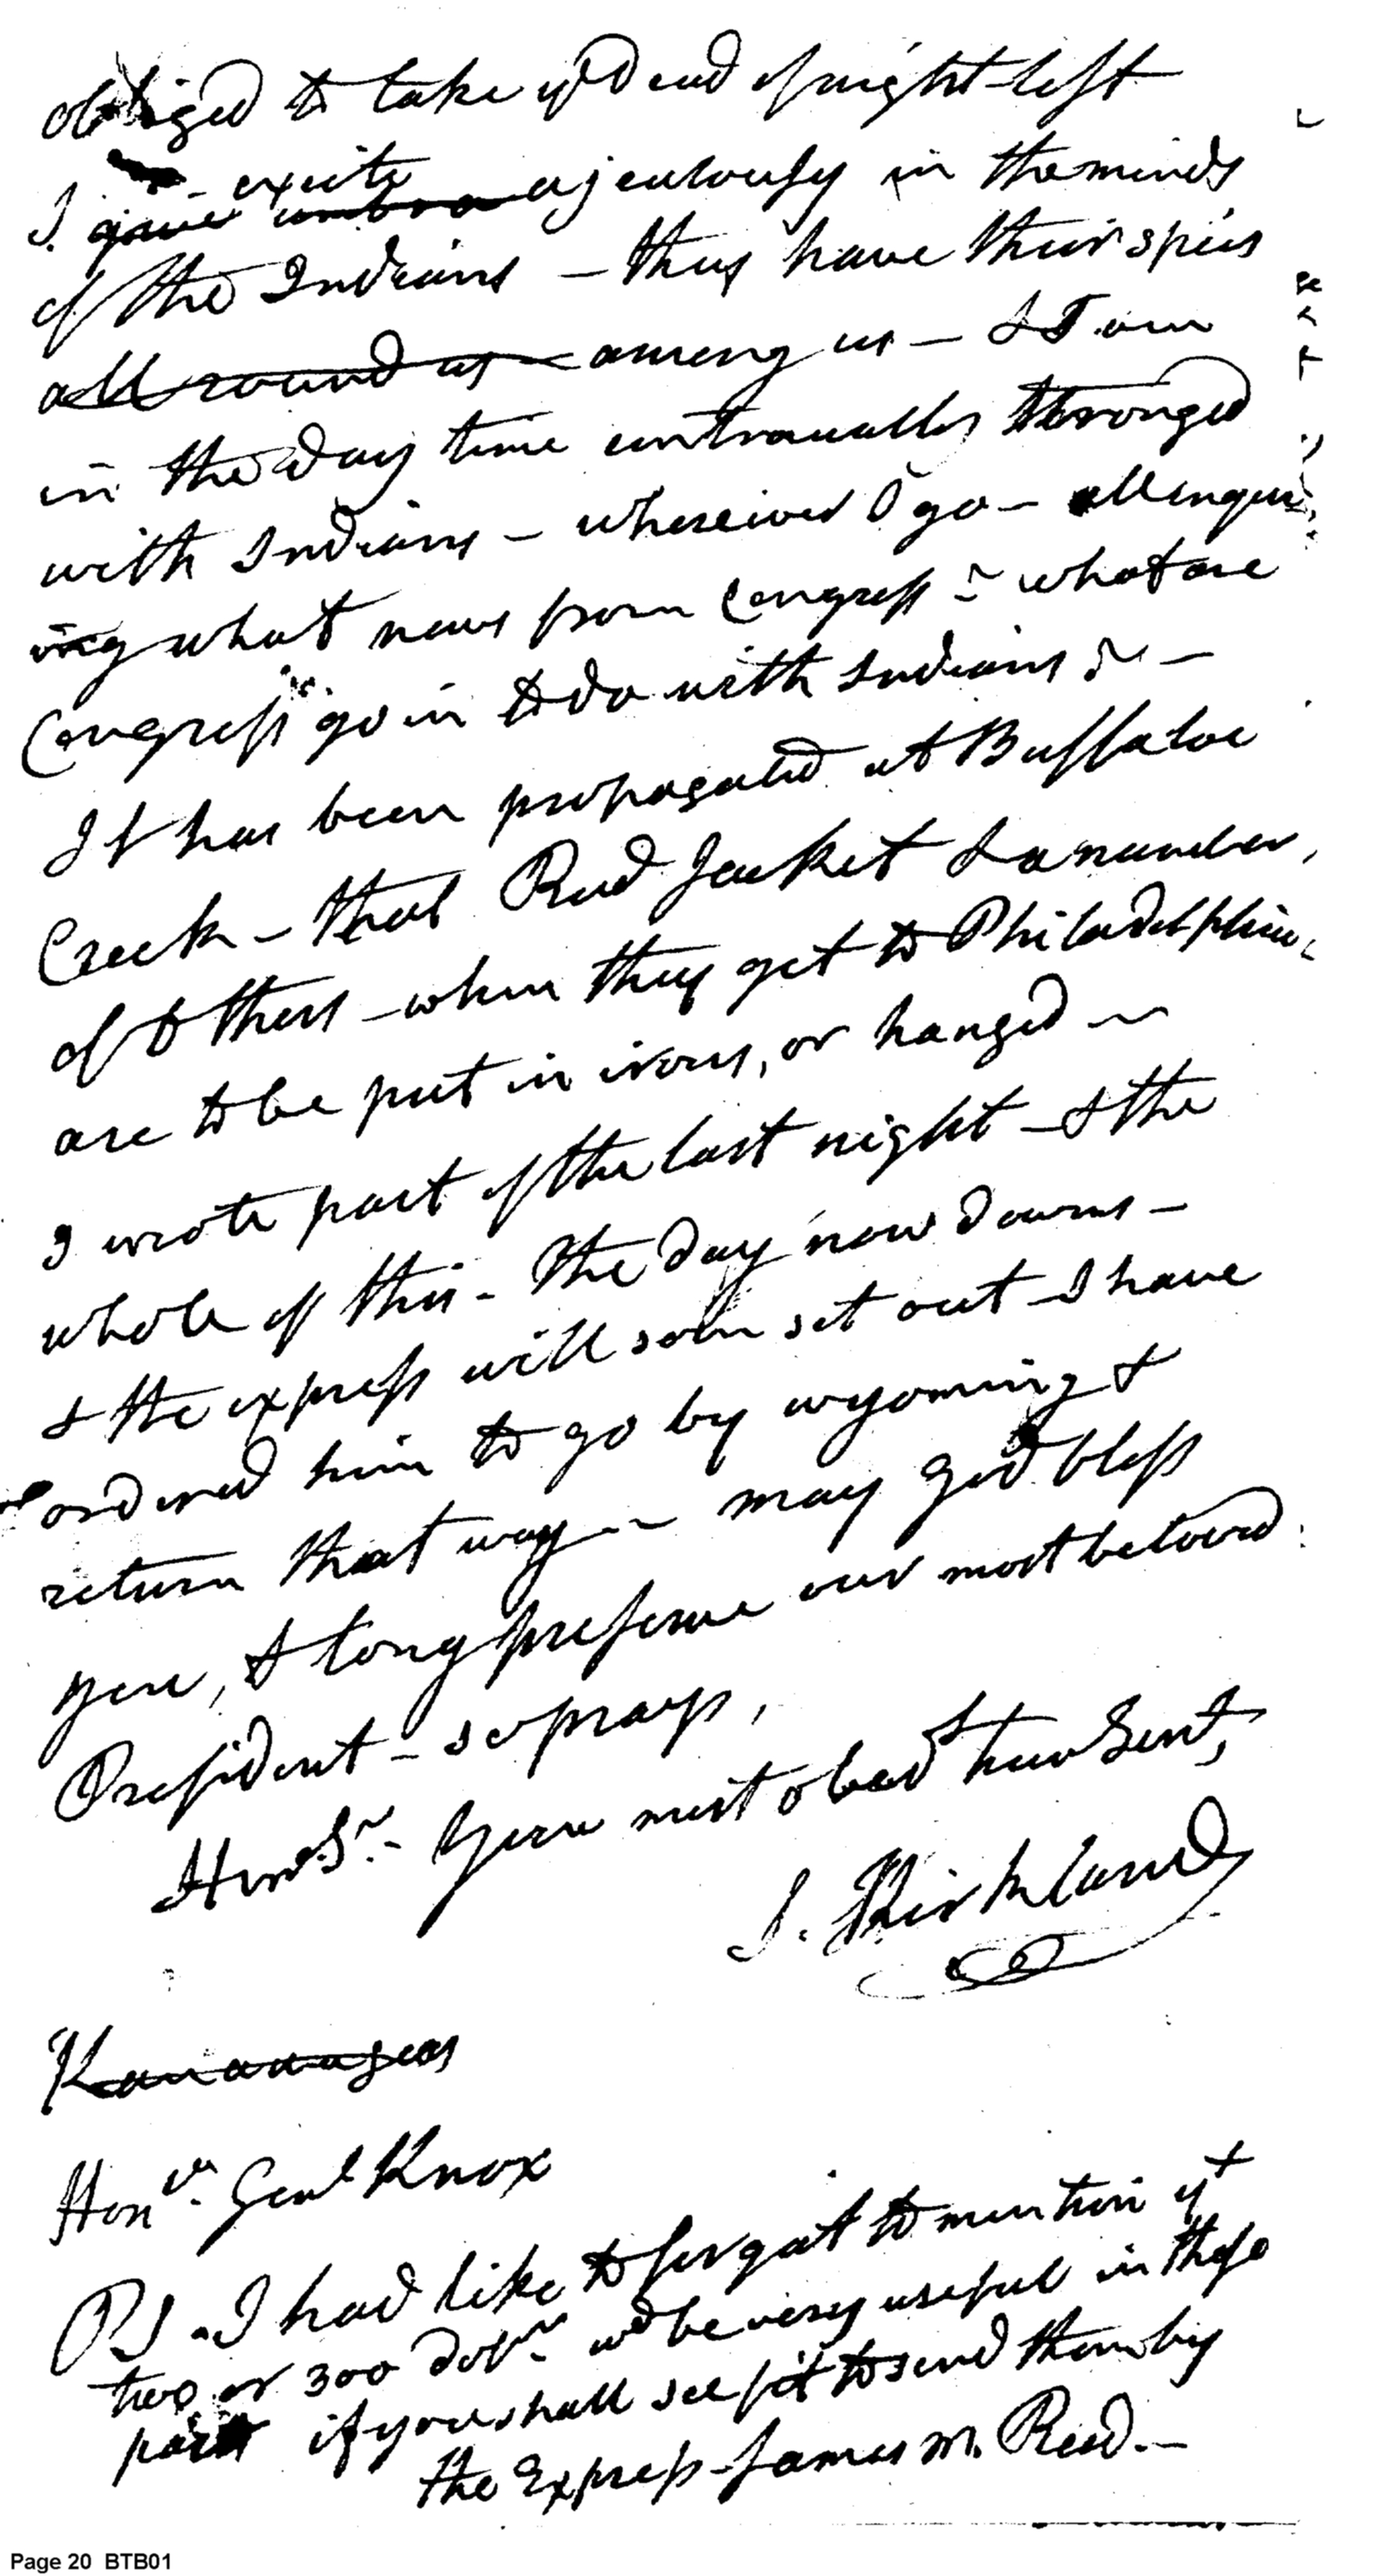 obliged to take ye Dead of night lest
I give umbra excite a jealousy in the minds
of the Indians – they have their spies
all round us – among us – & I am
in the day time continually thronged
with Indians – wherever I go – all enquir
ing what news from Congress – what are
Congress goin to do with Indians? –
It has been propagated at Buffaloe
Creek – that Red Jacket & a number,
of others – when they get to Philadelphia
are to be put in irons, or hanged –
I wrote part of the last night – & the
whole of this – The day now dawns –
& the express will soon set out – I have
ordered him to go by wyoming &
return that way – may God bless
you, & long preserve our most beloved
President – so prays,
Honr Sr. – Your most obedt hum Servt,
S. Kirkland
Kanandagua
Honle Genl Knox
PS. I had like to forgat to mention yt
two or 300 dolrs wd be very useful in these
parts if you shall see fit to send them by
the Express – James M. Reed. –
Page 20 BTB01